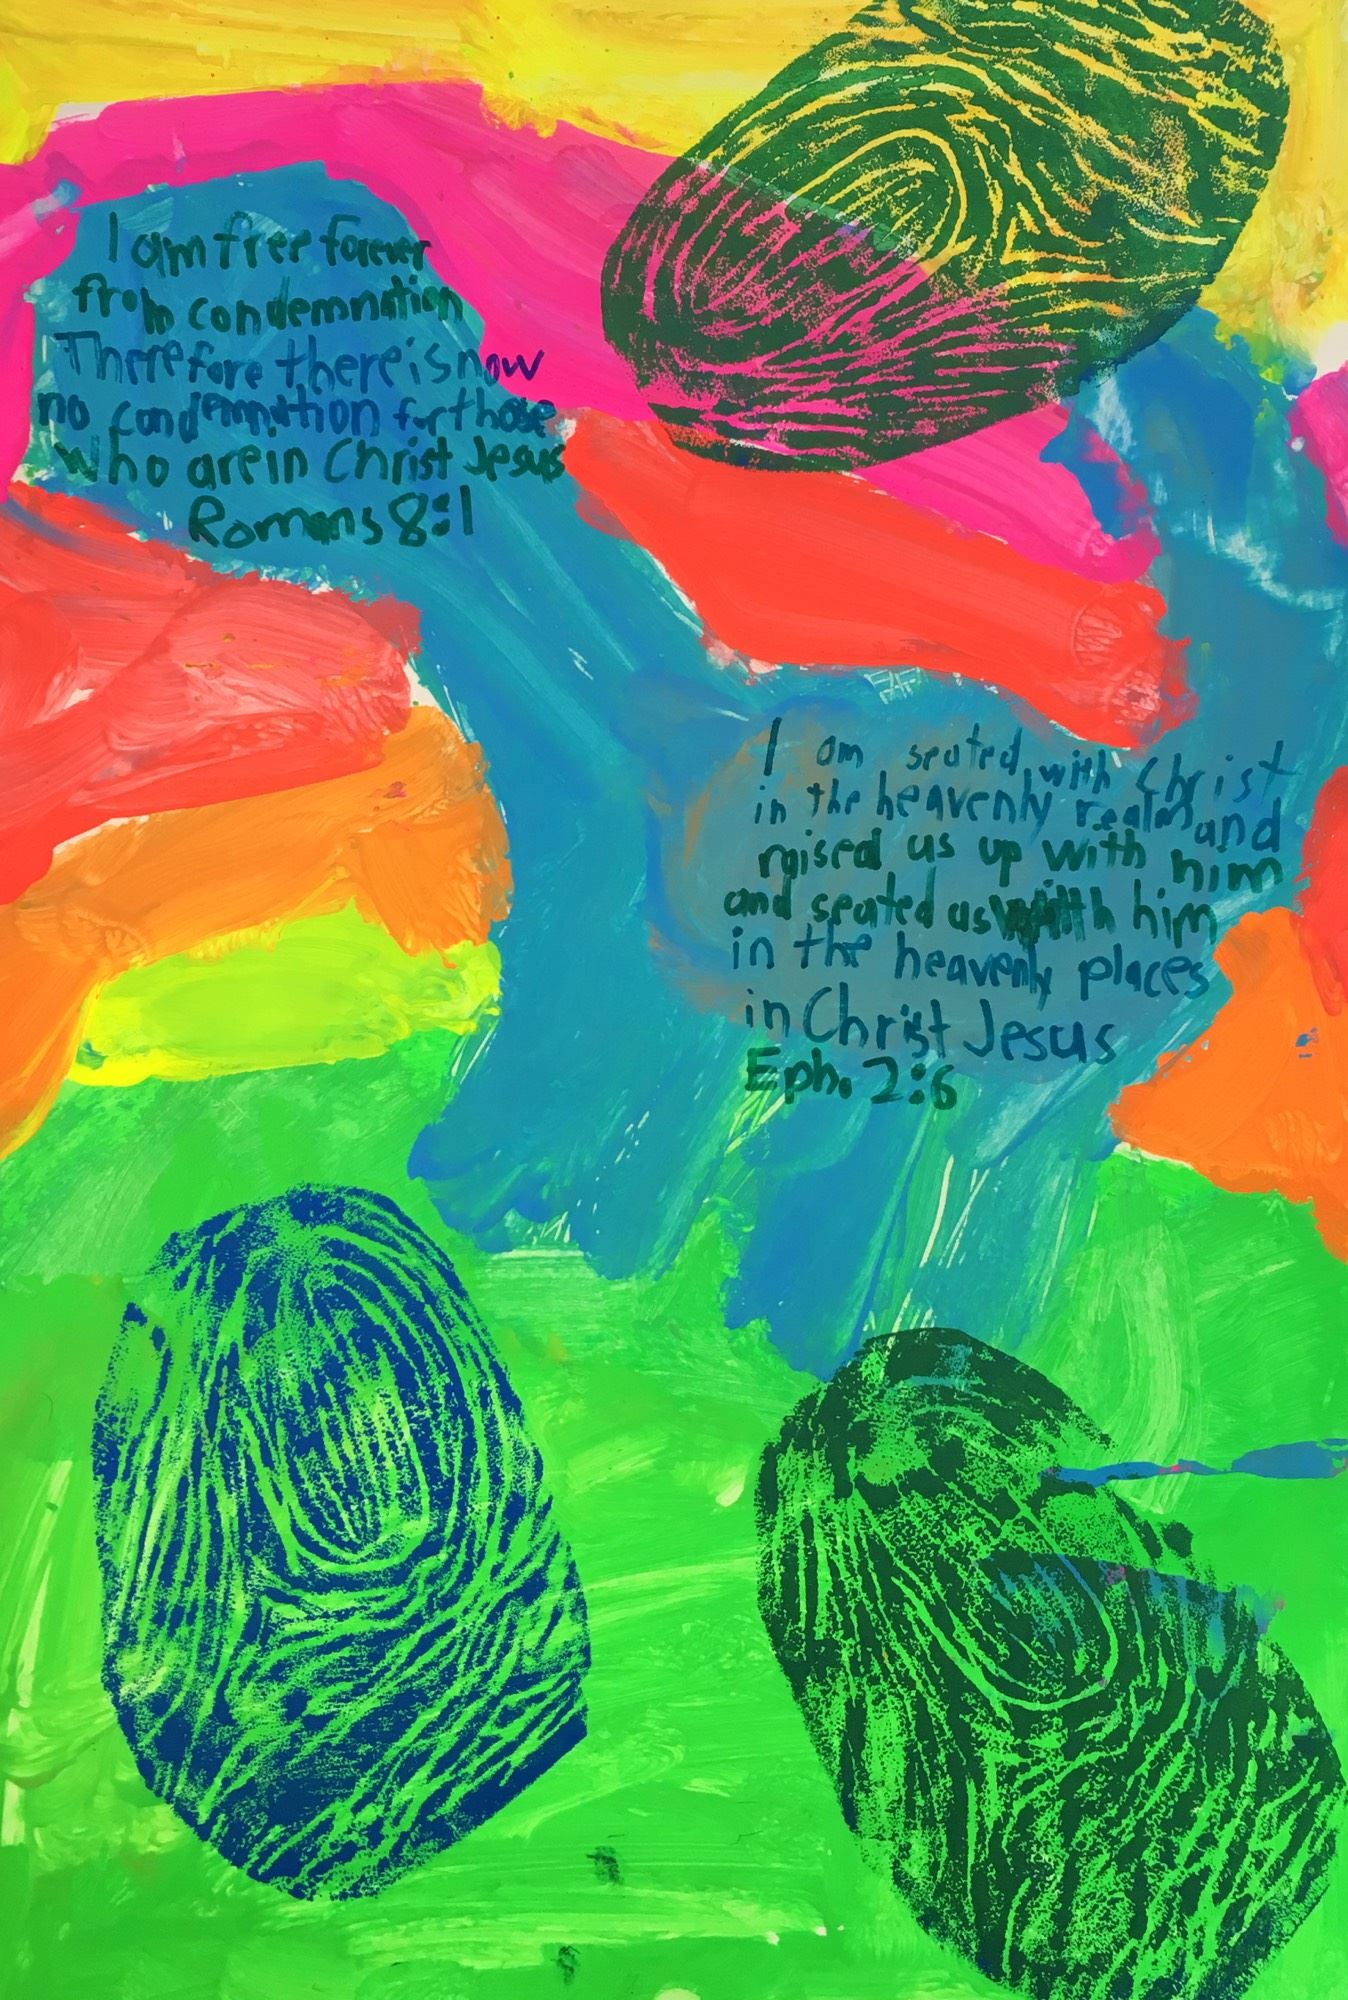 I am free forever
from condemnation
Therefore there is now
no condemnation for those
who are in Christ Jesus
Romans 8:1
I am seated with Christ
in the heavenly realm and
raised us up with him
and seated us with him
in the heavenly places
in Christ Jesus
Eph. 2:6